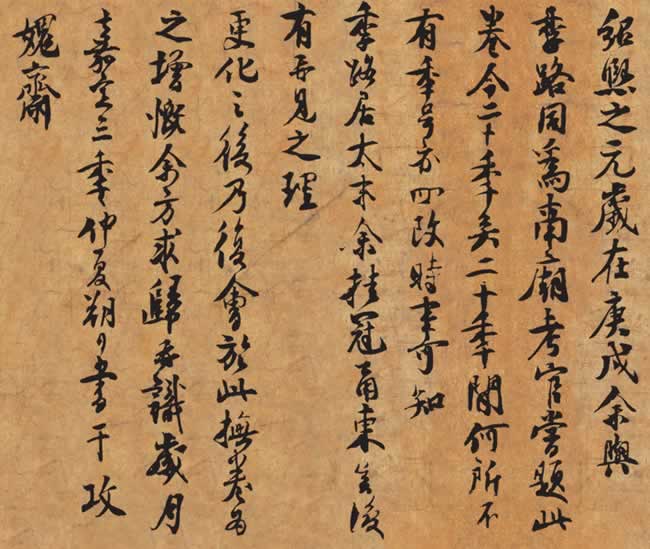 紹熙之元歲在庚戌余與
季路同爲南廟考官嘗題此
卷今二十秊矣二十秊間何所不
有秊号亦四改時事可知
季路居太末余挂冠甬東豈復
有再見之理
更化之後乃復會於此撫卷爲
之增慨余方求歸再識歲月
嘉定三秊仲夏朔日書于攻
媿齋